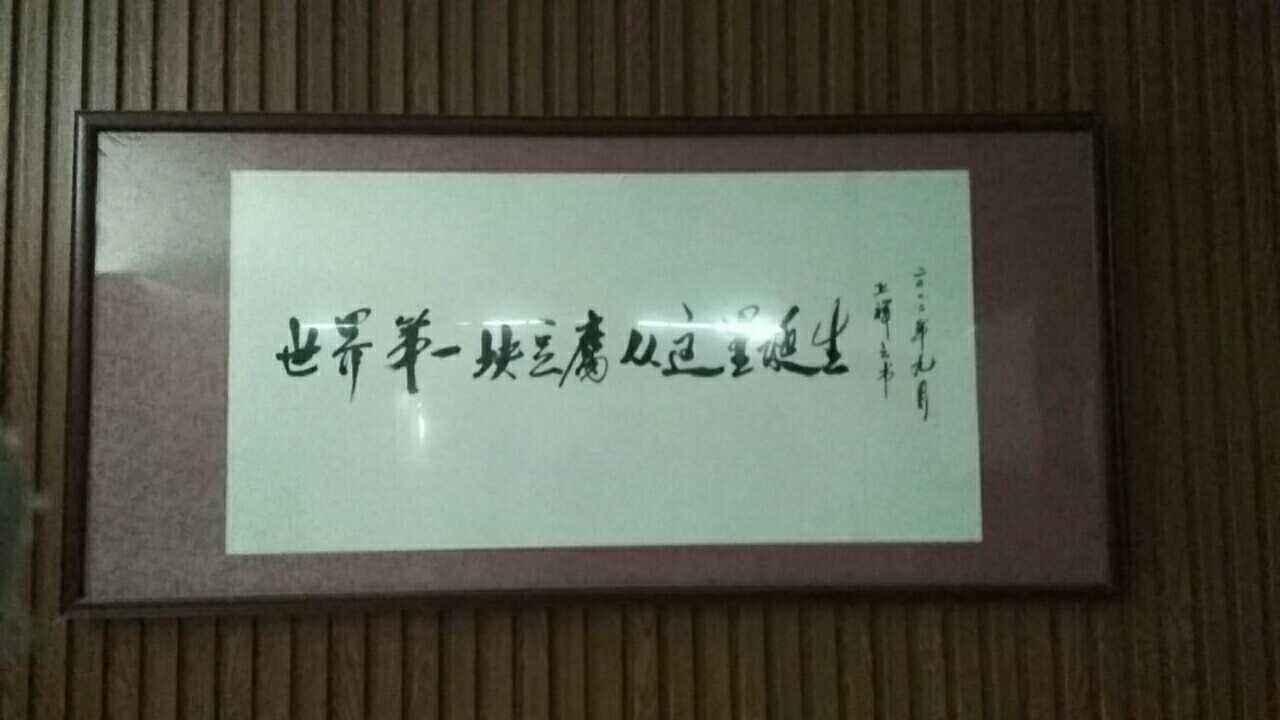 世界第一块豆腐从这里诞生
二〇〇二年九月